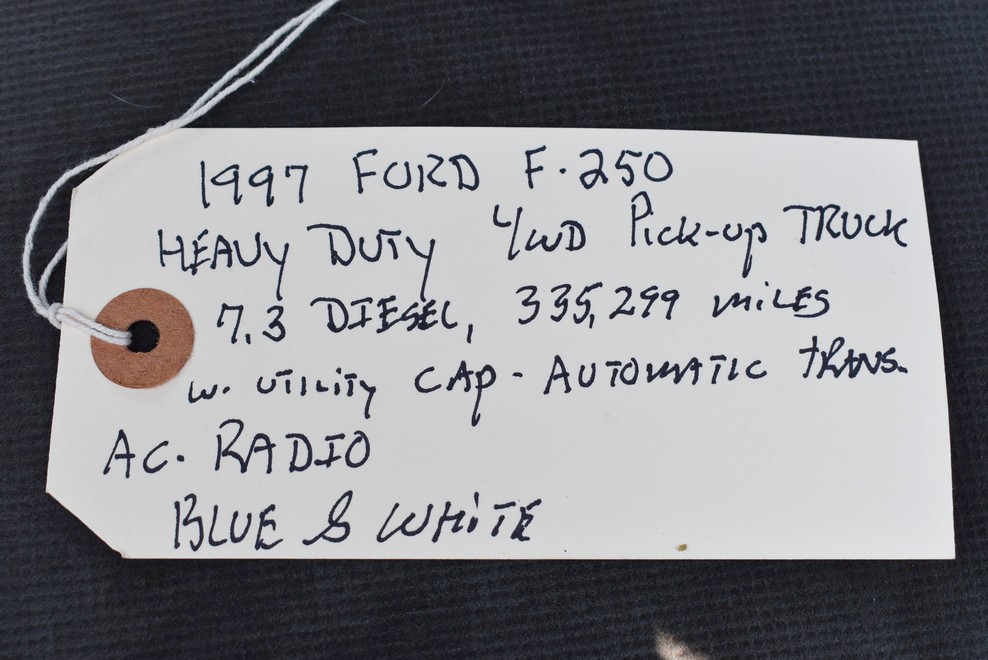 1997 FORD F-250
HEAVY DUTY 4WD Pick-up TRUCK
7.3 DIESEL, 335,299 miLES
w. UTiLiTY CAP - AUTOMATIC TRANS.
AC. RADIO
BLUE & WHiTE